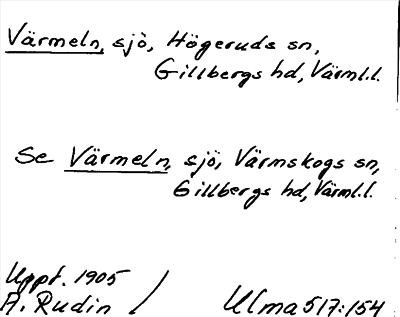 Värmeln, sjö, Högeruds sn,
Gillbergs hd, Värml.l.
Se Värmeln, sjö, Värmskogs sn,
Gillbergs hd, Värml.l.
Uppt. 1905
A. Rudin / Ulma 517:154